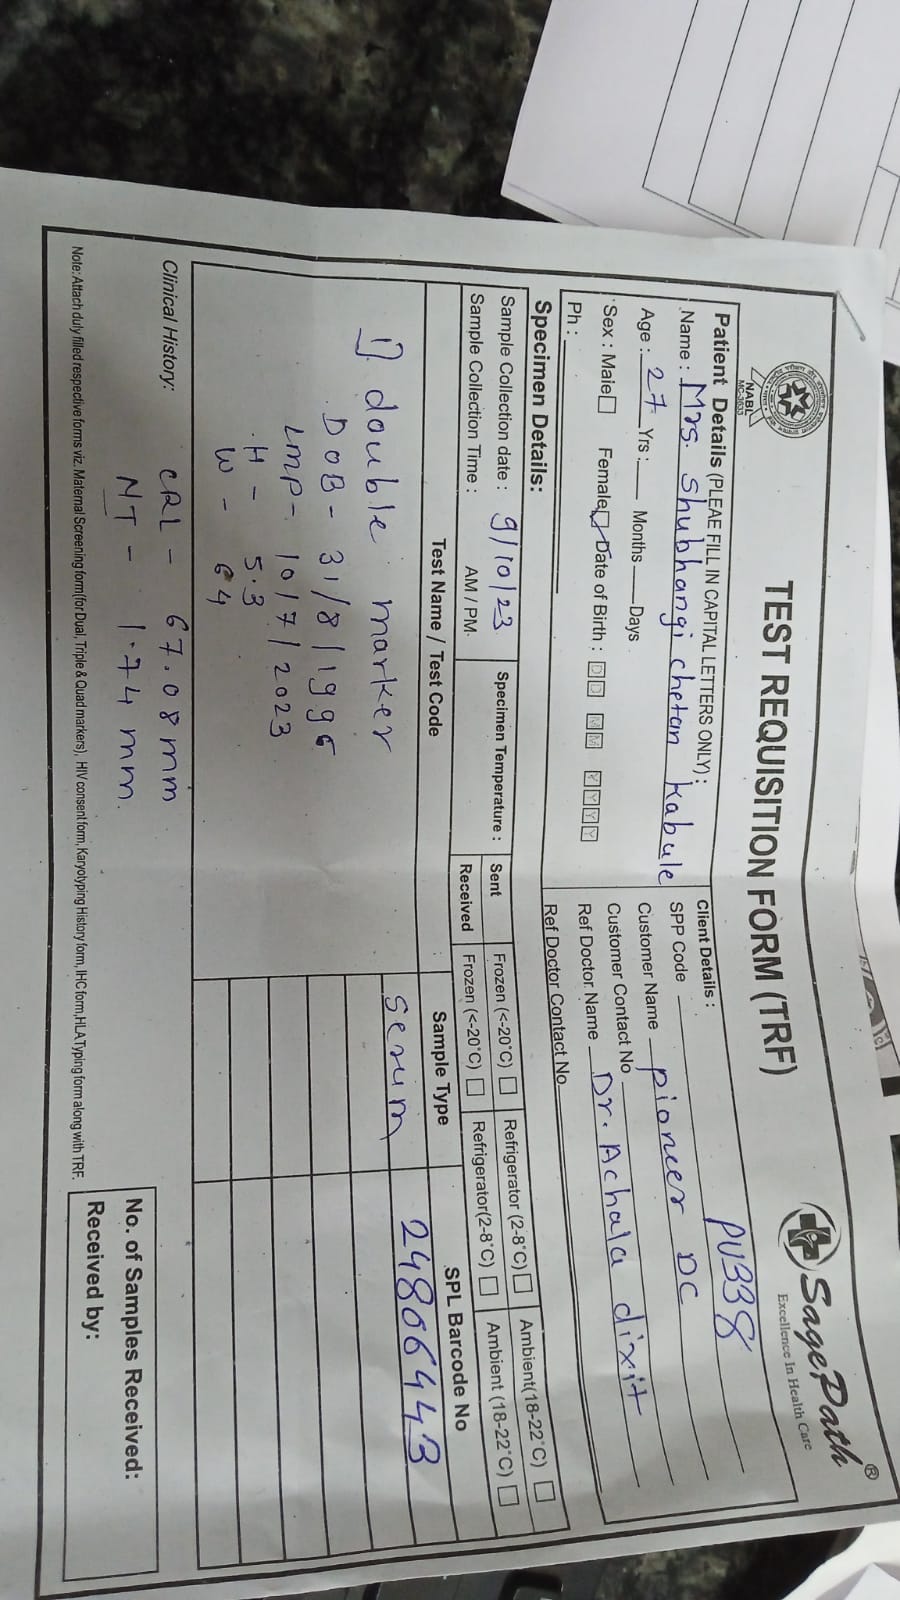 NABL
MC-3603
TEST REQUISITION FORM (TRF)
SagePath®
Excellence In Health Care
Patient Details (PLEAE FILL IN CAPITAL LETTERS ONLY) :
Name : Mrs. Shubhangi chetan kabule
Age : 27 Yrs : Months Days
Sex : Male Female Date of Birth : DD MM YYYY
Ph :
Client Details :
SPP Code PU338
Customer Name pioneer DC
Customer Contact No
Ref Doctor Name Dr. Achala dixit
Ref Doctor Contact No
Specimen Details:
Sample Collection date : 9/10/23
Sample Collection Time : AM / PM
Specimen Temperature :
Sent Frozen (<-20°C) Refrigerator (2-8°C) Ambient(18-22°C)
Received Frozen (<-20°C) Refrigerator(2-8°C) Ambient (18-22°C)
Test Name / Test Code Sample Type SPL Barcode No
1) double marker serum 24806443
DOB - 31/8/1996
LMP - 10/7/2023
H - 5.3
W - 64
Clinical History: CRL - 67.08 mm
NT - 1.74 mm.
No. of Samples Received:
Received by:
Note: Attach duly filled respective forms viz. Maternal Screening form(for Dual, Triple & Quad markers), HIV consent form, Karyotyping History form, IHC form,HLA Typing form along with TRF.